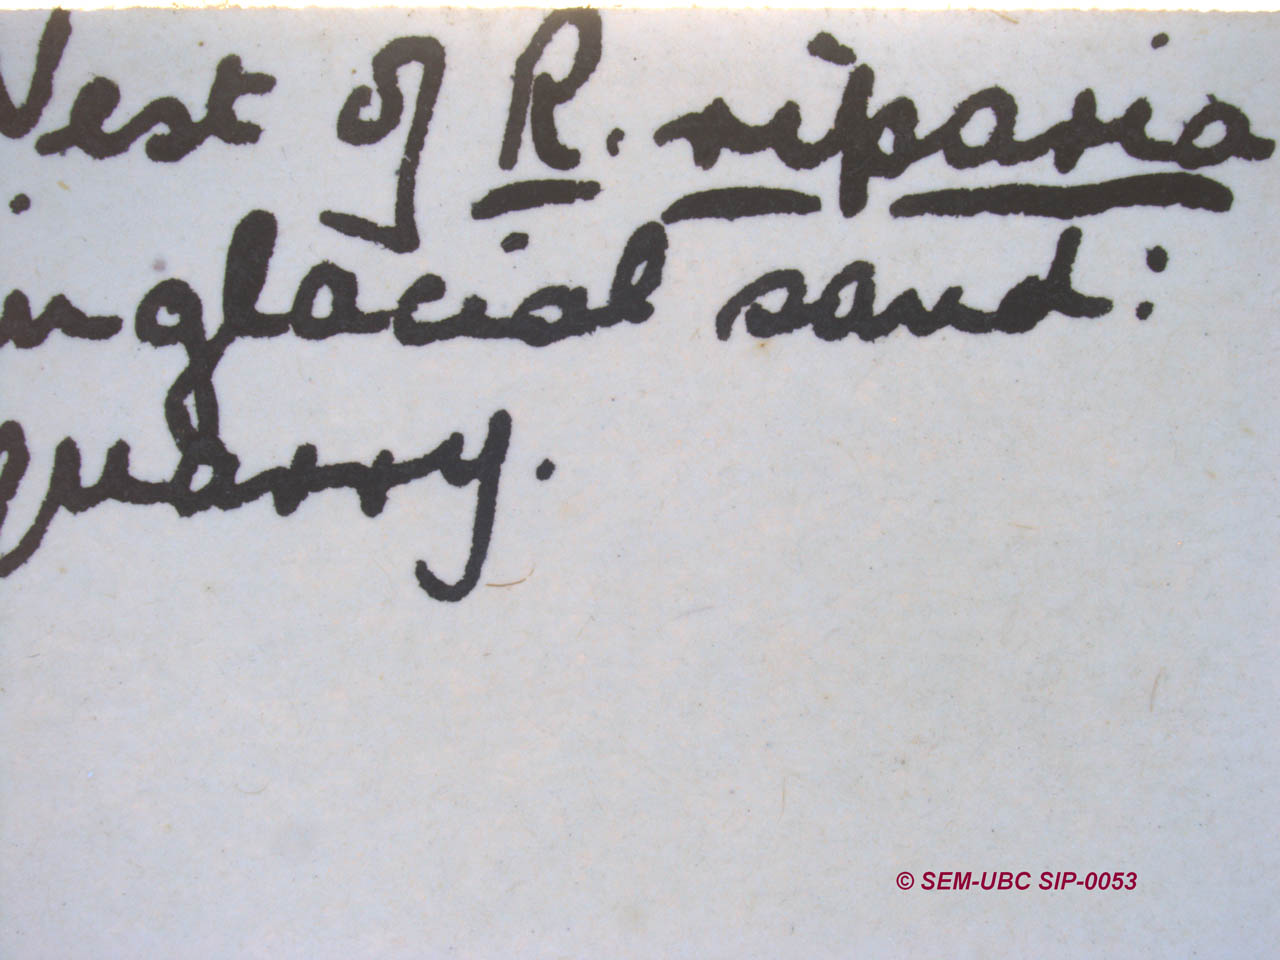 Nest of R. riparia
in glacial sand:
quarry.
© SEM-UBC SIP-0053